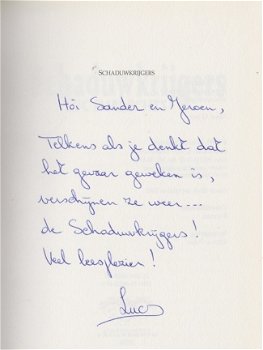 SCHADUWKRIJGERS
Hoi Sander en Jeroen,
Telkens als je denkt dat
het gevaar geweken is,
verschijnen ze weer...
de Schaduwkrijgers!
Veel leesplezier!
Luc